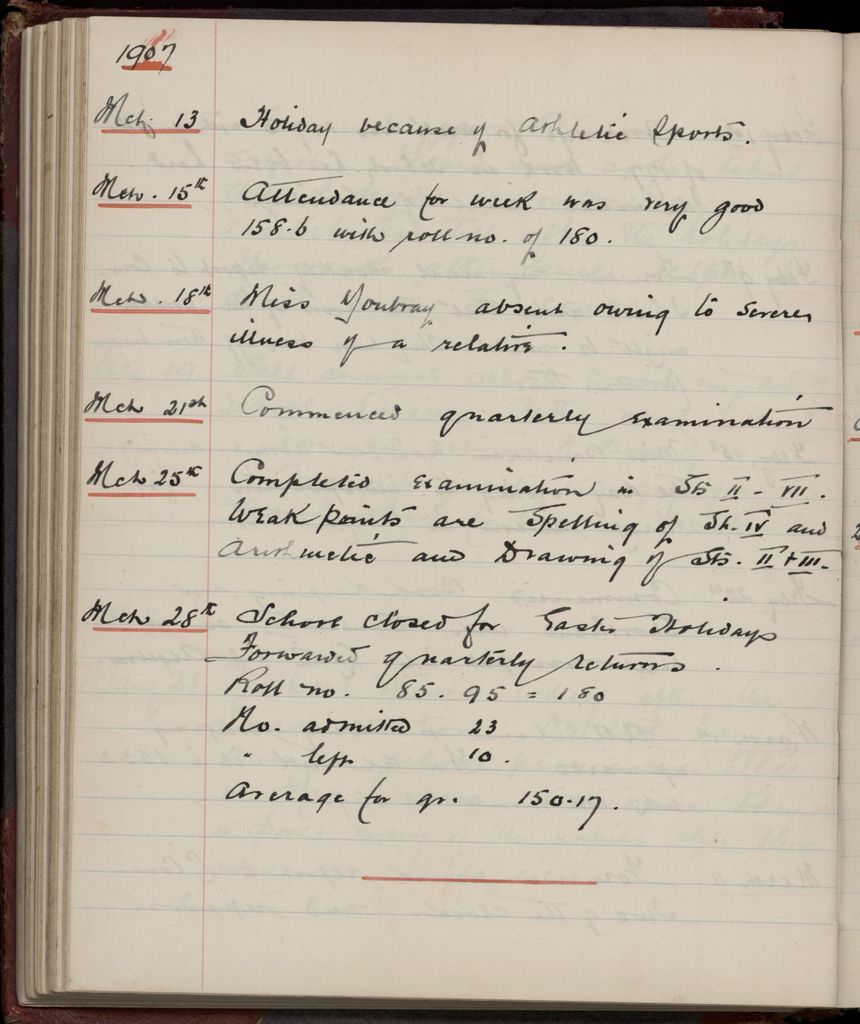 1907
Mch. 13 Holiday because of Athletic Sports.
Mch. 15th Attendance for week was very good
158.6 with roll no. of 180.
Mch. 18th Miss absent owing to severe
illness of a relative.
Mch 21st Commenced quarterly examination
Mch 25th Completed examination in Sts II - VII.
Weak points are Spelling of St. IV and
Arithmetic and Drawing of Sts. II + III.
Mch 28th School closed for Easter Holidays
Forwarded quarterly returns.
Roll no. 85. 95 = 180
No. admitted 23
" left 10.
Average for qr. 150.17.